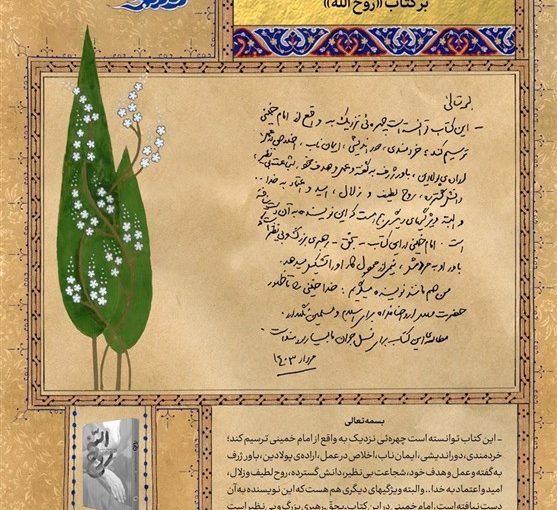 بر کتاب «روح الله»
بسمه‌تعالی
- این کتاب توانسته است چهره‌ئی نزدیک به واقع از امام خمینی
ترسیم کند؛ خردمندی، دوراندیشی، ایمان ناب، اخلاص در عمل،
اراده‌ی پولادین، باور ژرف به گفته و عمل و هدف خود، شجاعت بی نظیر،
دانش گسترده، روح لطیف و زلال، امید و اعتماد به خدا ..
و البته ویژگیهای دیگری هم هست که این نویسنده به آن دست نیافته
است. امام خمینی در این کتاب - بحق - رهبری بزرگ و بی نظیر است
باور او به مردمش، نیمی از محصول کار او را تشکیل میدهد.
من هم مانند نویسنده میگویم: خدا خمینی را تا ظهور
حضرت مهدی ارواحنا فداه برای اسلام و مسلمین نگهدارد.
مطالعه‌ی این کتاب برای نسل جوان ما بسیار سودمند است.
مرداد ۱۴۰۳
بسمه تعالی
- این کتاب توانسته است چهره‌ئی نزدیک به واقع از امام خمینی ترسیم کند؛
خردمندی، دوراندیشی، ایمان ناب، اخلاص در عمل، اراده‌ی پولادین، باور ژرف
به گفته و عمل و هدف خود، شجاعت بی نظیر، دانش گسترده، روح لطیف و زلال،
امید و اعتماد به خدا.. و البته ویژگیهای دیگری هم هست که این نویسنده به آن
دست نیافته است. امام خمینی در این کتاب، بحق، رهبری بزرگ و بی نظیر است